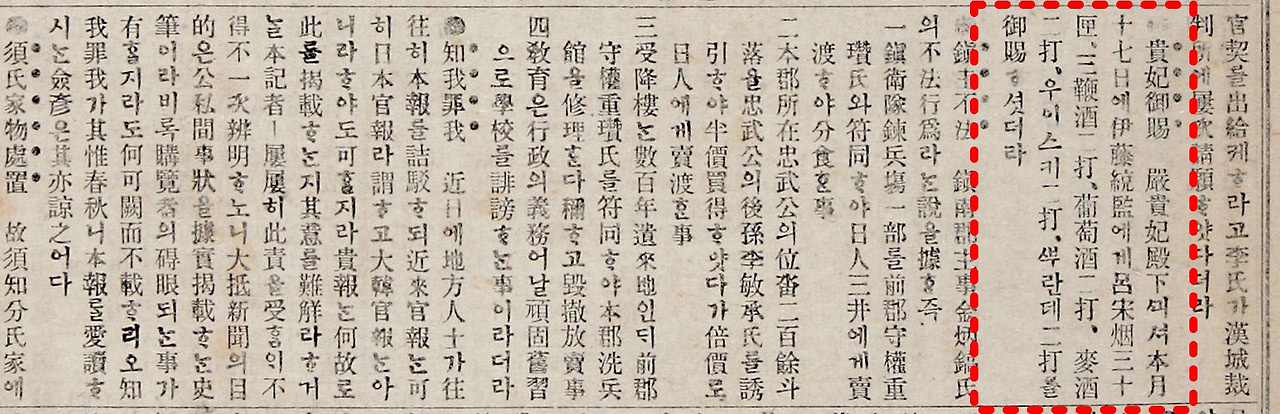 官契를出給케ᄒᆞ라고李氏가漢城裁
判所에屢次請願ᄒᆞ얏다더라
貴妃御賜 嚴貴妃殿下ᄭᅴ셔本月
十七日에伊藤統監에게呂宋烟三十
匣、三鞭酒一打、葡萄酒二打、麥酒
二打、우이스키一打、ᄲᅮ란데二打를
御賜ᄒᆞ셧더라
鎭主不法 鎭南郡主事金炳錦氏
의不法行爲라ᄂᆞᆫ說을據ᄒᆞᆫ즉
一鎭衛隊鍊兵塲一部를前郡守權重
瓚氏와符同ᄒᆞ야日人三井에게賣
渡ᄒᆞ야分食ᄒᆞᆫ事
二本郡所在忠武公의位畓二百餘斗
落을忠武公의後孫李敏承氏를誘
引ᄒᆞ야半價買得ᄒᆞ얏다가倍價로
日人에게賣渡ᄒᆞᆫ事
三受降樓ᄂᆞᆫ數百年遺來地인ᄃᆡ前郡
守權重瓚氏를符同ᄒᆞ야本郡洗兵
館을修理ᄒᆞᆫ다稱ᄒᆞ고毀撤放賣事
四敎育은行政의義務어날頑固舊習
으로學校를誹謗ᄒᆞᄂᆞᆫ事이라더라
知我罪我 近日에地方人士가往
往히本報를詰駁ᄒᆞ되近來官報ᄂᆞᆫ可
히日本官報라謂ᄒᆞ고大韓官報ᄂᆞᆫ아
니라ᄒᆞ야도可ᄒᆞᆯ지라貴報ᄂᆞᆫ何故로
此를揭載ᄒᆞᄂᆞᆫ지其意를難解라ᄒᆞ거
ᄂᆞᆯ本記者ㅣ屢屢히此責을受ᄒᆞᆷᄋᆡ不
得不一次辨明ᄒᆞ노니大抵新聞의目
的은公私間事狀을據實揭載ᄒᆞᄂᆞᆫ史
筆이라비록購覽者의碍眼되ᄂᆞᆫ事가
有ᄒᆞᆯ지라도何可闕而不載ᄒᆞ리오知
我罪我가其惟春秋니本報를愛讀ᄒᆞ
시ᄂᆞᆫ僉彦은其亦諒之어다
須氏家物處置 故須知分氏家에